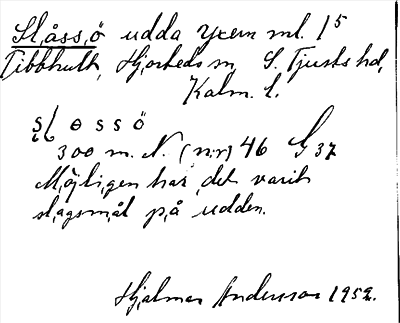 Slåssö udda Yxern ml. 1⁵
Tibbhult, Hjorteds sn, S. Tjusts hd,
Kalm. l.
sl o s s ö
300 m. N. (nr) 46 G 37
Möjligen har det varit
slagsmål på udden.
Hjalmar Andersson 1952.